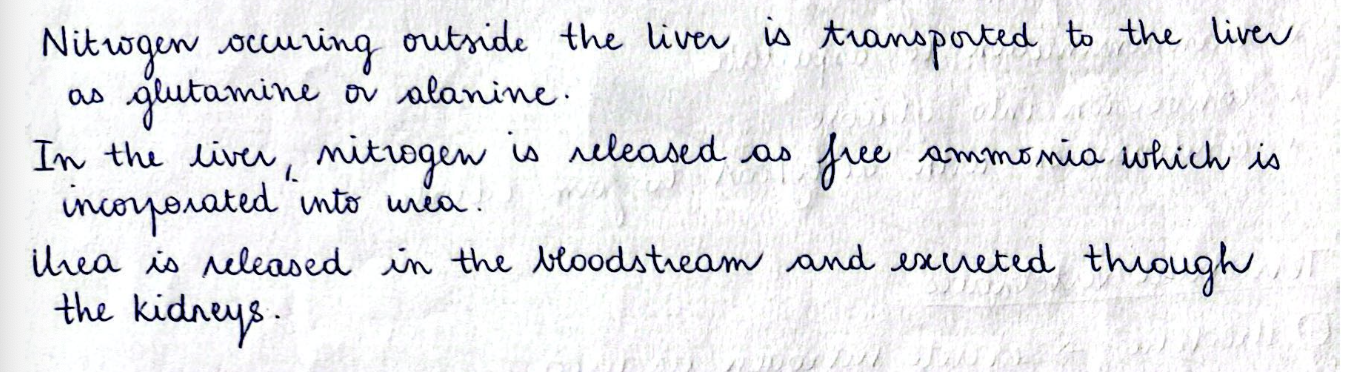 Nitrogen occuring outside the liver is transported to the liver
as glutamine or alanine.
In the liver, nitrogen is released as free ammonia which is
incorporated into urea.
Urea is released in the bloodstream and excreted through
the kidneys.